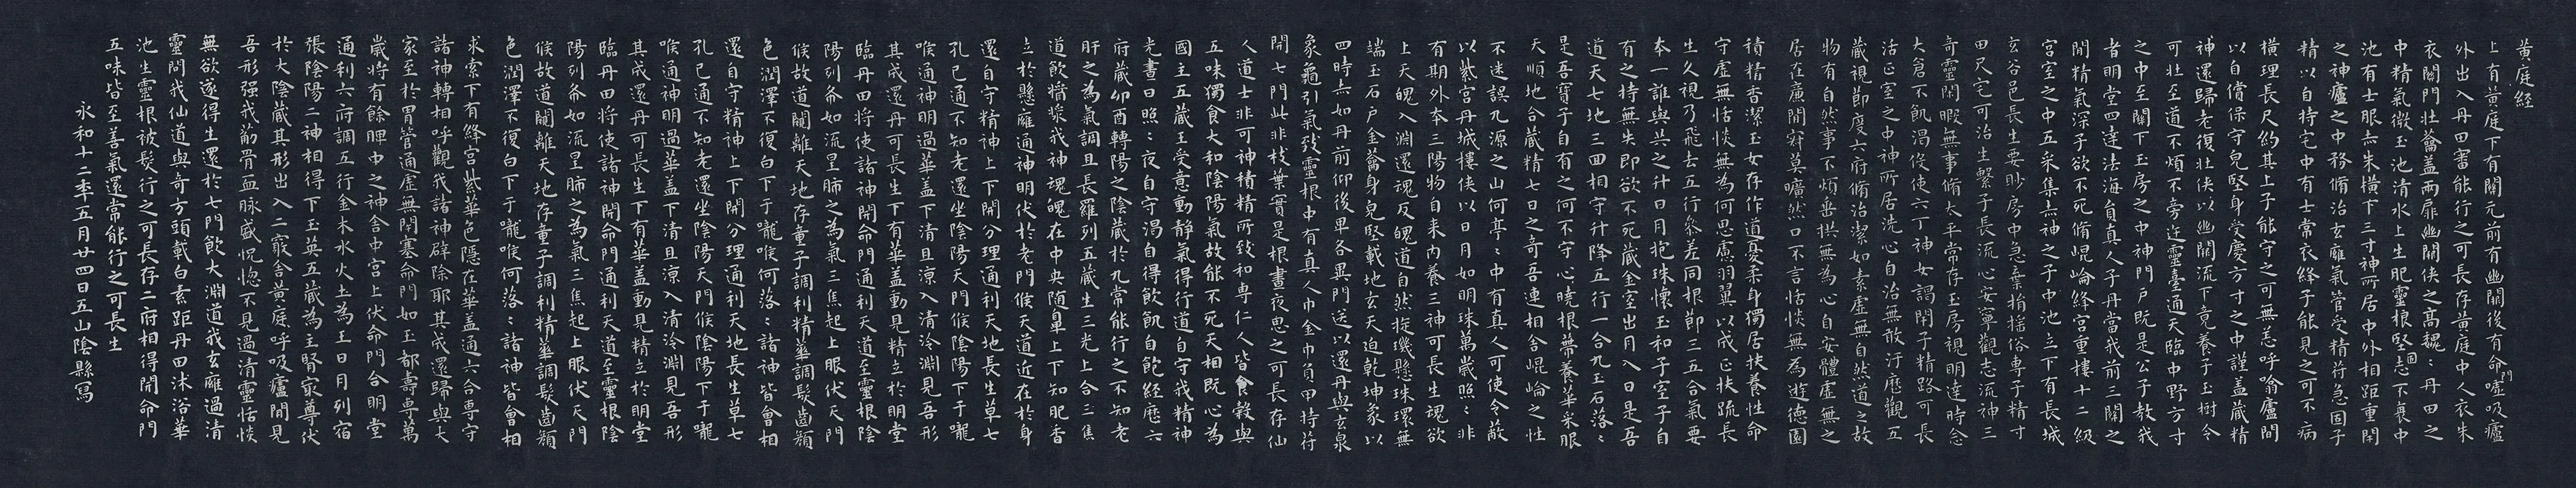 黃庭經
上有黃庭下有關元前有幽闕後有命門噓吸廬
外出入丹田審能行之可長存黃庭中人衣朱
衣關門壯籥蓋兩扉幽闕俠之高魏〻丹田之
中精氣微玉池清水上生肥靈根堅固志不衰中
池有士服赤朱橫下三寸神所居中外相距重閉
之神廬之中務脩治玄膺氣管受精符急固子
精以自持宅中有士常衣絳子能見之可不病
橫理長尺約其上子能守之可無恙呼噏廬間
以自償保守皃堅身受慶方寸之中謹蓋藏精
神還歸老復壯俠以幽闕流下竟養子玉樹令
可壯至道不煩不旁迕靈臺通天臨中野方寸
之中至關下玉房之中神門戶既是公子教我
者明堂四達法海員真人子丹當我前三關之
閒精氣深子欲不死脩崐崘絳宮重樓十二級
宮室之中五采集赤神之子中池立下有長城
玄谷邑長生要眇房中急棄捐搖俗專子精寸
田尺宅可治生繫子長流心安寧觀志流神三
奇靈閒暇無事脩太平常存玉房視明達時念
大倉不飢渴役使六丁神女謁閉子精路可長
活正室之中神所居洗心自治無敢汙歷觀五
藏視節度六府脩治潔如素虛無自然道之故
物有自然事不煩垂拱無為心自安體虛無之
居在廉閒寂莫曠然口不言恬惔無為遊德園
積精香潔玉女存作道憂柔身獨居扶養性命
守虛無恬惔無為何思慮羽翼以成正扶疏長
生久視乃飛去五行參差同根節三五合氣要
本一誰與共之升日月抱珠懷玉和子室子自
有之持無失即欲不死藏金室出月入日是吾
道天七地三四相守升降五行一合九玉石落〻
是吾寶子自有之何不守心曉根蔕養華采服
天順地合藏精七日之奇吾連相合崐崘之性
不迷誤九源之山何亭〻中有真人可使令蔽
以紫宮丹城樓俠以日月如明珠萬歲照〻非
有期外本三陽物自來內養三神可長生魂欲
上天魄入淵還魂反魄道自然旋璣懸珠環無
端玉石戶金籥身皃堅載地玄天迫乾坤象以
四時赤如丹前仰後卑各異門送以還丹與玄泉
象龜引氣致靈根中有真人巾金巾負甲持符
開七門此非枝葉實是根晝夜思之可長存仙
人道士非可神積精所致和專仁人皆食穀與
五味獨食大和陰陽氣故能不死天相既心為
國主五藏王受意動靜氣得行道自守我精神
光晝日照〻夜自守渴自得飲飢自飽經歷六
府藏卯酉轉陽之陰藏於九常能行之不知老
肝之為氣調且長羅列五藏生三光上合三焦
道飲漿我神魂魄在中央随鼻上下知肥香
立於懸雍通神明伏於老門候天道近在於身
還自守精神上下開分理通利天地長生草七
孔已通不知老還坐陰陽天門候陰陽下于嚨
喉通神明過華蓋下清且涼入清泠淵見吾形
其成還丹可長生下有華蓋動見精立於明堂
臨丹田將使諸神開命門通利天道至靈根陰
陽列布如流星肺之為氣三焦起上服伏天門
候故道闚離天地存童子調利精華調髮齒顏
色潤澤不復白下于嚨喉何落〻諸神皆會相
還自守精神上下開分理通利天地長生草七
孔已通不知老還坐陰陽天門候陰陽下于嚨
喉通神明過華蓋下清且涼入清泠淵見吾形
其成還丹可長生下有華蓋動見精立於明堂
臨丹田將使諸神開命門通利天道至靈根陰
陽列布如流星肺之為氣三焦起上服伏天門
候故道闚離天地存童子調利精華調髮齒顏
色潤澤不復白下于嚨喉何落〻諸神皆會相
求索下有絳宮紫華色隱在華蓋通六合專守
諸神轉相呼觀我諸神辟除耶其成還歸與大
家至於胃管通虛無閉塞命門如玉都壽專萬
歲將有餘脾中之神舍中宮上伏命門合明堂
通利六府調五行金木水火土為王日月列宿
張陰陽二神相得下玉英五藏為主腎最尊伏
於大陰藏其形出入二竅舍黃庭呼吸廬閒見
吾形強我筋骨血脉盛怳惚不見過清靈恬惔
無欲遂得生還於七門飲大淵道我玄雍過清
靈問我仙道與奇方頭載白素距丹田沐浴華
池生靈根被髮行之可長存二府相得開命門
五味皆至善氣還常能行之可長生
永和十二年五月廿四日五山陰縣寫